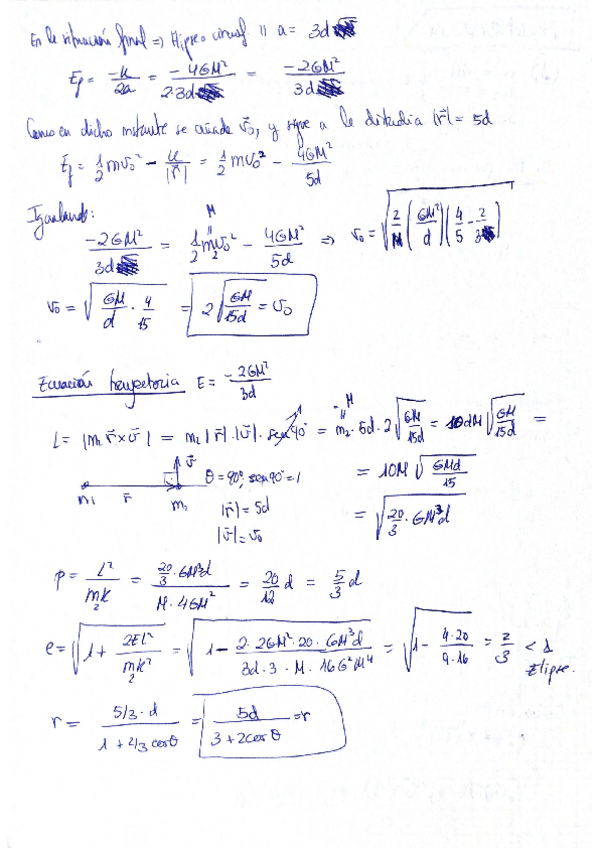 En la situación final => Hipno circuf. || a = 3d
E_f = -k/2a = -4GM²/2·3d = -2GM²/3d
Como en dicho instante se añade v⃗₀, y sigue a la distancia |r⃗| = 5d
E_f = 1/2 mv₀² - k/|r⃗| = 1/2 mv₀² - 4GM²/5d
Igualando:
M
-2GM²/3d = 1/2 m₂v₀² - 4GM²/5d => v₀ = √(2/M (GM²/d)(4/5 - 2/3))
v₀ = √(GM/d · 4/15) = 2√(GM/15d) = v₀
Ecuación trayectoria E = -2GM²/3d
L = |m₂ r⃗ × v⃗| = m₂|r⃗|·|v⃗|·sen 90° = m₂·5d·2√(GM/15d) = 10dM√(GM/15d) =
M
1
v⃗ θ = 90°, sen90° = 1 = 10M√(GMd/15)
m₁ r⃗ m₂ |r⃗| = 5d
|v⃗| = v₀ = √(20/3 · GM³d)
p = L²/m₂k = (20/3 · GM³d)/(M·4GM²) = 20/12 d = 5/3 d
e = √(1 + 2EL²/m₂k²) = √(1 - 2·2GM²·20·GM³d/3d·3·M·16G²M⁴) = √(1 - 4·20/9·16) = 2/3 < 1
Elipse.
r = 5/3·d/1 + 2/3 cosθ = 5d/3 + 2cosθ = r